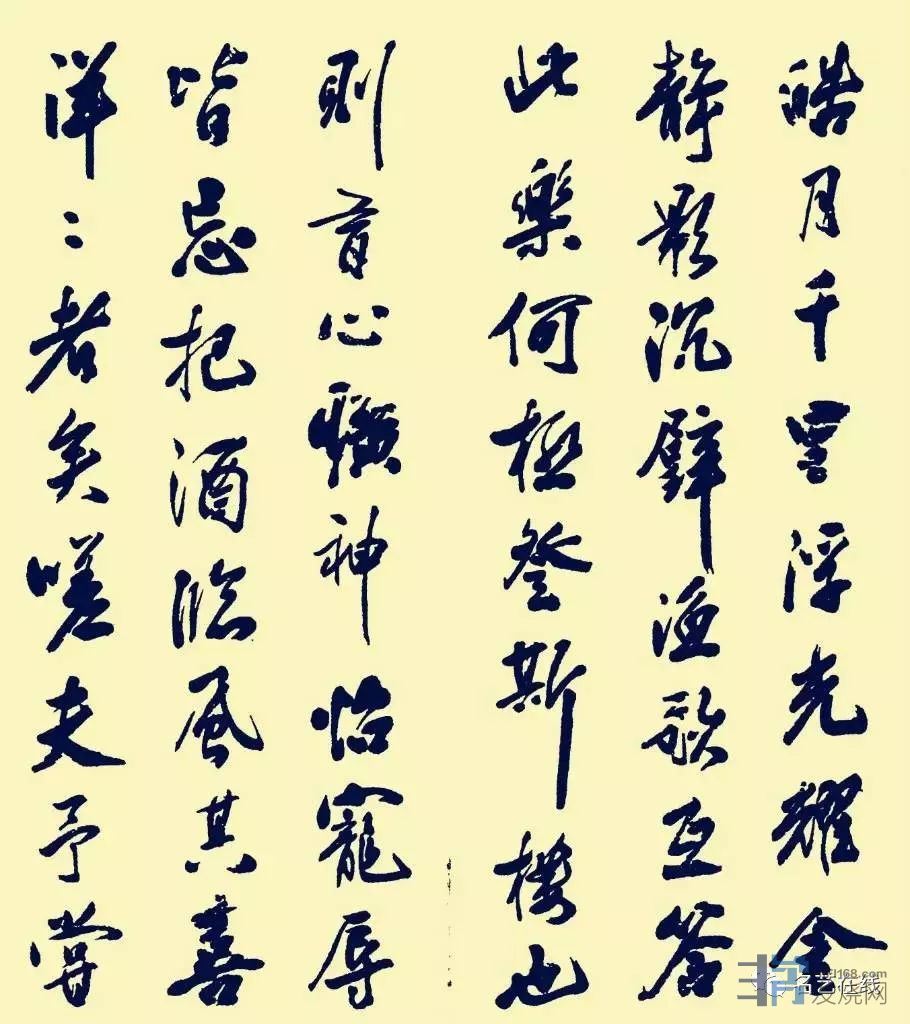 皓月千里浮光耀金
靜影沉璧漁歌互答
此樂何極登斯樓也
則有心曠神怡寵辱
皆忘把酒臨風其喜
洋〻者矣嗟夫予嘗
名艺在线
发烧网